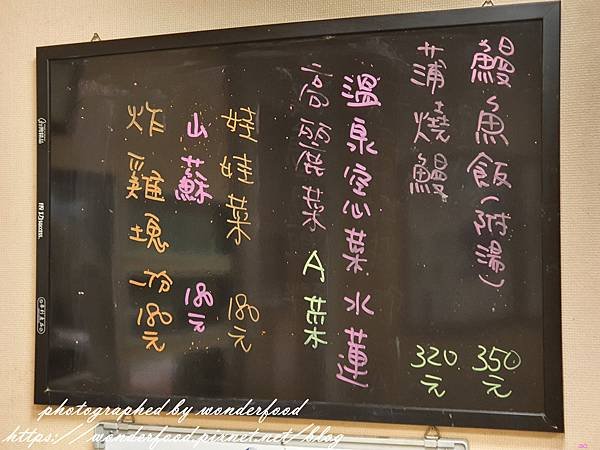 鰻魚飯(附湯) 350元
蒲燒鰻 320元
溫泉空心菜 水蓮
高麗菜 A菜
娃娃菜 180元
山蘇 180元
炸雞塊 一份 180元
photographed by wonderfood
https://wonderfood.pixnet.net/blog